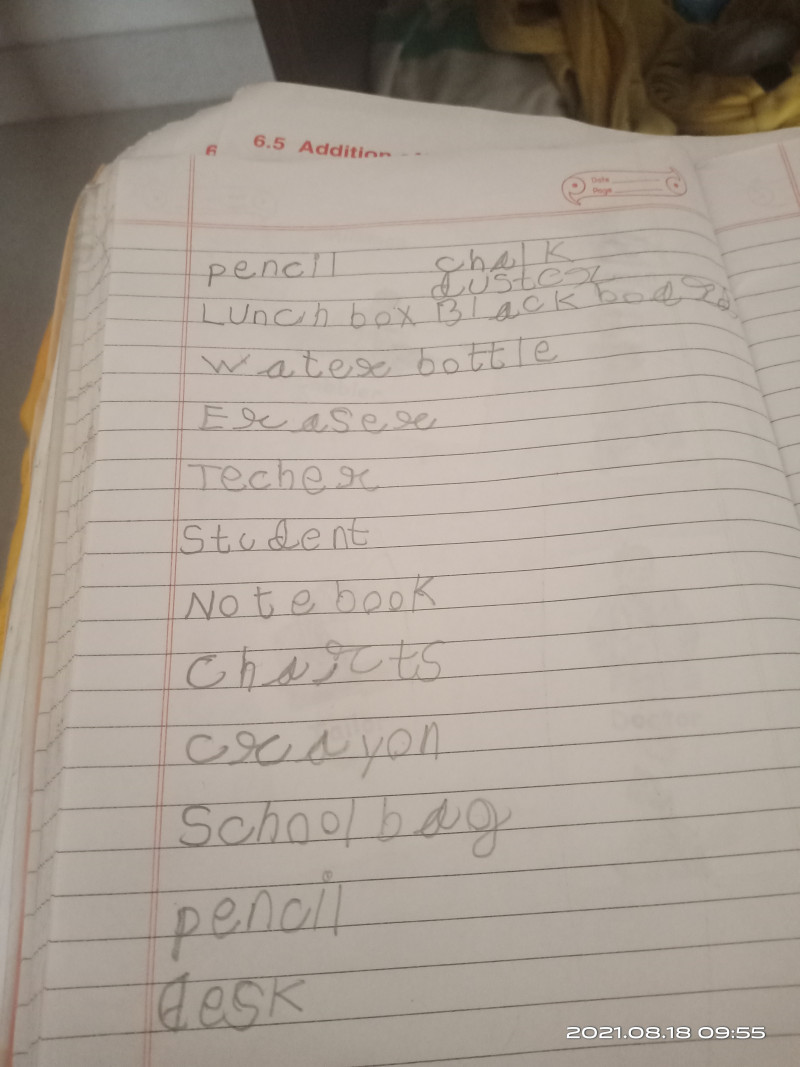 6 6.5 Addition
Date
Page
pencil chalk
duster
Lunch box Black board
Water bottle
Eraser
Techer
Student
Notebook
Charts
crayon
School bag
pencil
desk
2021.08.18 09:55